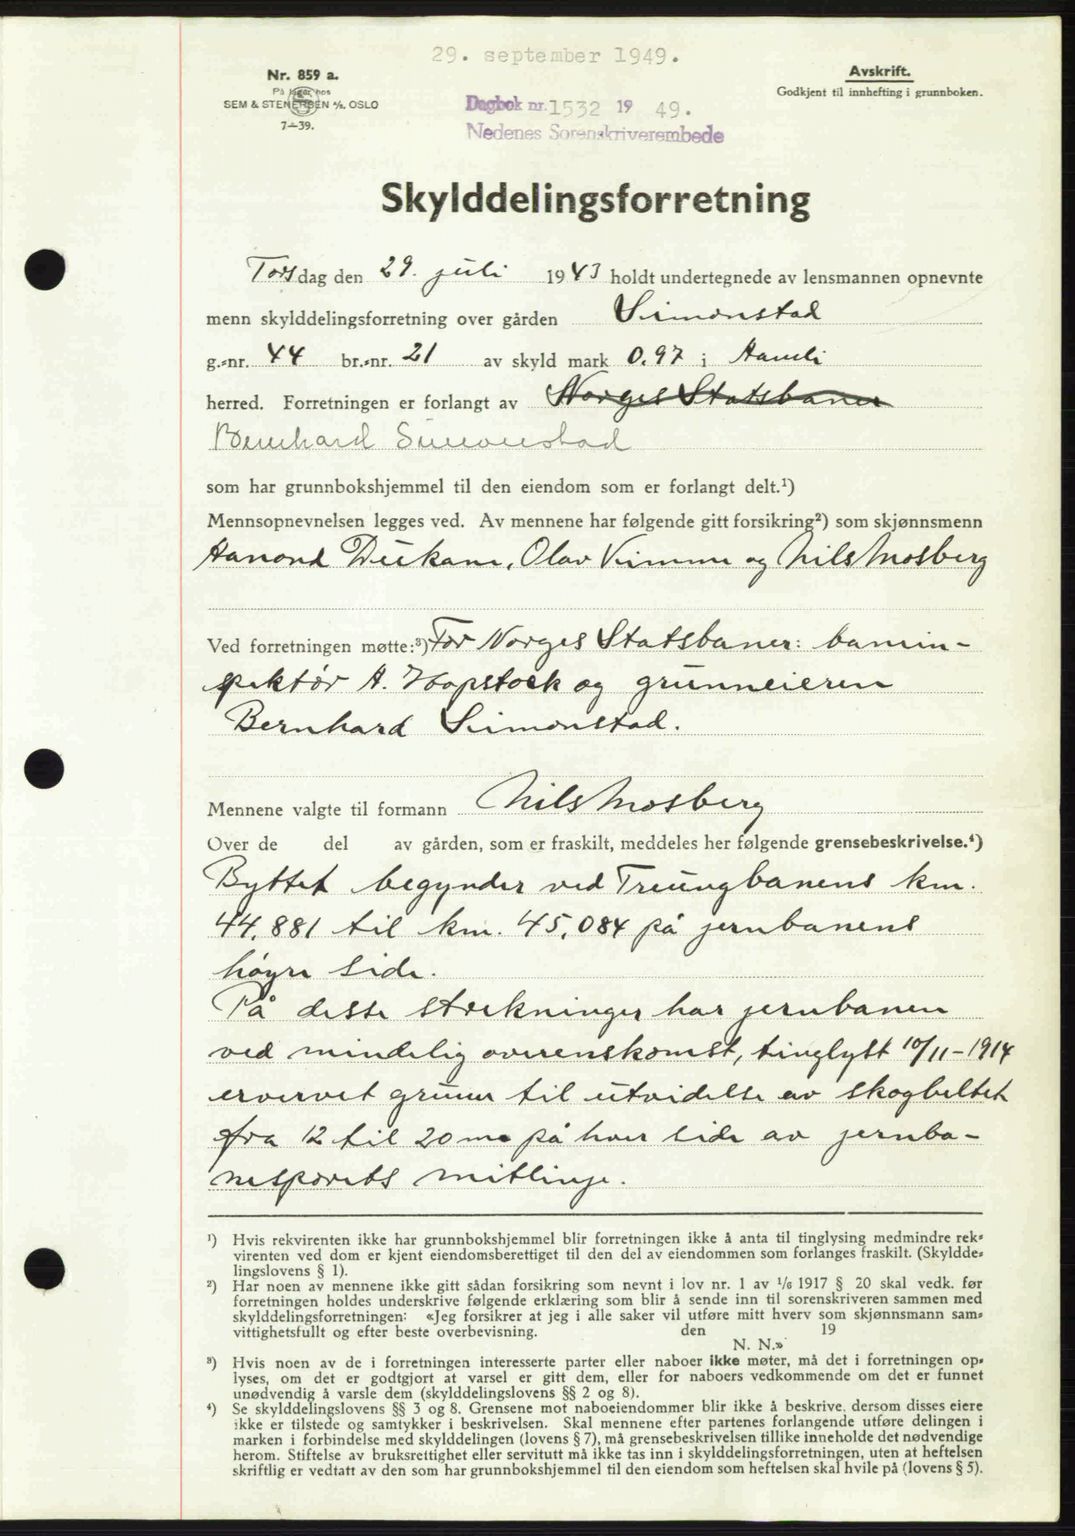 29. september 1949.
Nr. 859 a.
På lager hos
SEM & STENERSEN A/S. OSLO
7—39.
Avskrift.
Godkjent til innhefting i grunnboken.
Dagbok nr. 1532 19 49.
Nedenes Sorenskriverembede
Skylddelingsforretning
Torsdag den 29. juli 1943 holdt undertegnede av lensmannen opnevnte
menn skylddelingsforretning over gården Simonstad
g.-nr. 44 br.-nr. 21 av skyld mark 0.97 i Aamli
herred. Forretningen er forlangt av Norges Statsbaner
Bernhard Simonstad
som har grunnbokshjemmel til den eiendom som er forlangt delt.¹)
Mennsopnevnelsen legges ved. Av mennene har følgende gitt forsikring²) som skjønnsmenn
Aanond , Olav og Nils Mosberg
Ved forretningen møtte:³) For Norges Statsbaner: banin-
spektør A. Hopstock og grunneieren
Bernhard Simonstad.
Mennene valgte til formann Nils Mosberg
Over de del av gården, som er fraskilt, meddeles her følgende grensebeskrivelse.⁴)
Byttet begynder ved Treungbanens km.
44,881 til km. 45,084 på jernbanens
høyre side.
På disse strekninger har jernbanen
ved mindelig overenskomst, tinglyst 10/11-1914
ervervet grunn til utvidelse av skogbeltet
fra 12 til 20 m. på hver side av jernba-
nesporets mitlinje.
¹) Hvis rekvirenten ikke har grunnbokshjemmel blir forretningen ikke å anta til tinglysing medmindre rek-
virenten ved dom er kjent eiendomsberettiget til den del av eiendommen som forlanges fraskilt. (Skyldde-
lingslovens § 1).
²) Har noen av mennene ikke gitt sådan forsikring som nevnt i lov nr. 1 av 1/6 1917 § 20 skal vedk. før
forretningen holdes underskrive følgende erklæring som blir å sende inn til sorenskriveren sammen med
skylddelingsforretningen: «Jeg forsikrer at jeg i alle saker vil utføre mitt hverv som skjønnsmann sam-
vittighetsfullt og efter beste overbevisning. den 19
N. N.»
³) Hvis noen av de i forretningen interesserte parter eller naboer ikke møter, må det i forretningen op-
lyses, om det er godtgjort at varsel er gitt dem, eller for naboers vedkommende om det er funnet
unødvendig å varsle dem (skylddelingslovens §§ 2 og 8).
⁴) Se skylddelingslovens §§ 3 og 8. Grensene mot naboeiendommer blir ikke å beskrive, dersom disses eiere
ikke er tilstede og samtykker i beskrivelsen. Skal mennene efter partenes forlangende utføre delingen i
marken i forbindelse med skylddelingen (lovens § 7), må grensebeskrivelsen tillike inneholde det nødvendige
herom. Stiftelse av bruksrettighet eller servitutt må ikke tas inn i skylddelingsforretningen, uten at heftelsen
skriftlig er vedtatt av den som har grunnbokshjemmel til den eiendom som heftelsen skal hvile på (lovens § 5).